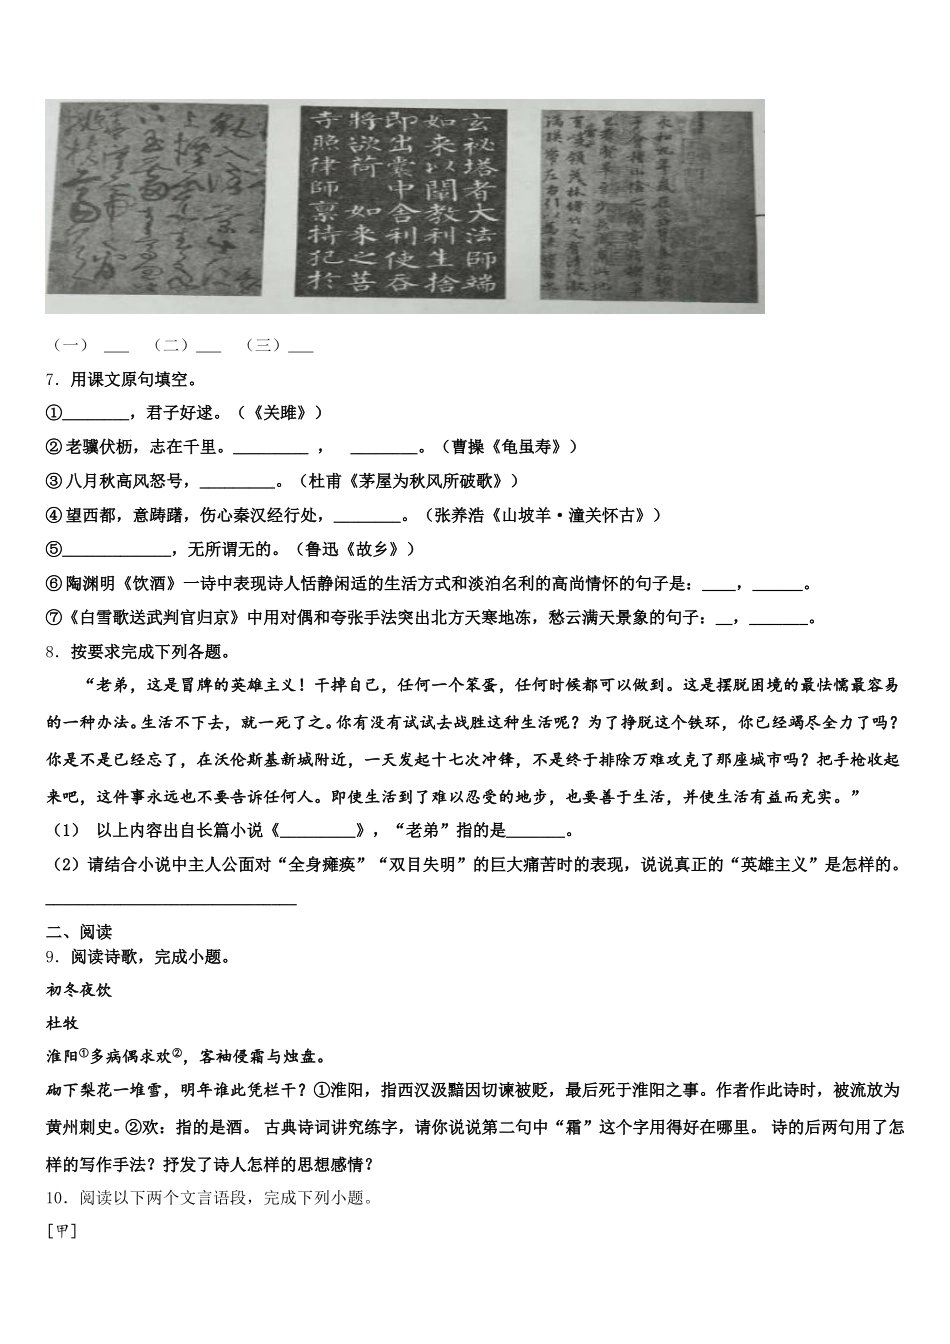 玄祕塔者大法師端
如来以闡教利生捨
即出囊中舍利使吞
將欲荷 如来之菩
寺照律師禀持犯於
（一） ___ （二）___ （三）___
7．用课文原句填空。
①________，君子好逑。（《关雎》）
②老骥伏枥，志在千里。_________ ， ________。（曹操《龟虽寿》）
③八月秋高风怒号，_________。（杜甫《茅屋为秋风所破歌》）
④望西都，意踌躇，伤心秦汉经行处，________。（张养浩《山坡羊·潼关怀古》）
⑤_____________，无所谓无的。（鲁迅《故乡》）
⑥陶渊明《饮酒》一诗中表现诗人恬静闲适的生活方式和淡泊名利的高尚情怀的句子是：____，______。
⑦《白雪歌送武判官归京》中用对偶和夸张手法突出北方天寒地冻，愁云满天景象的句子：__，_______。
8．按要求完成下列各题。
“老弟，这是冒牌的英雄主义！干掉自己，任何一个笨蛋，任何时候都可以做到。这是摆脱困境的最怯懦最容易
的一种办法。生活不下去，就一死了之。你有没有试试去战胜这种生活呢？为了挣脱这个铁环，你已经竭尽全力了吗？
你是不是已经忘了，在沃伦斯基新城附近，一天发起十七次冲锋，不是终于排除万难攻克了那座城市吗？把手枪收起
来吧，这件事永远也不要告诉任何人。即使生活到了难以忍受的地步，也要善于生活，并使生活有益而充实。”
（1） 以上内容出自长篇小说《_________》，“老弟”指的是_______。
（2）请结合小说中主人公面对“全身瘫痪”“双目失明”的巨大痛苦时的表现，说说真正的“英雄主义”是怎样的。
______________________________
二、阅读
9．阅读诗歌，完成小题。
初冬夜饮
杜牧
淮阳①多病偶求欢②，客袖侵霜与烛盘。
砌下梨花一堆雪，明年谁此凭栏干？①淮阳，指西汉汲黯因切谏被贬，最后死于淮阳之事。作者作此诗时，被流放为
黄州刺史。②欢：指的是酒。 古典诗词讲究练字，请你说说第二句中“霜”这个字用得好在哪里。 诗的后两句用了怎
样的写作手法？抒发了诗人怎样的思想感情？
10．阅读以下两个文言语段，完成下列小题。
[甲]